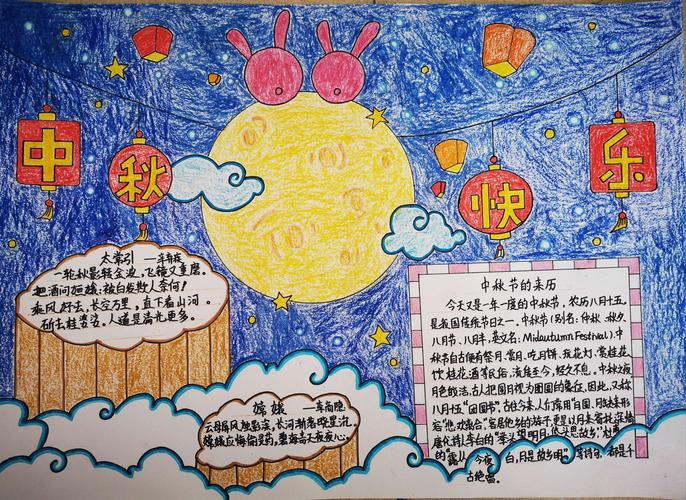 中秋快乐
太常引 —辛弃疾
一轮秋影转金波，飞镜又重磨。
把酒问姮娥：被白发欺人奈何！
乘风好去，长空万里，直下看山河。
斫去桂婆娑。人道是清光更多。
嫦娥 —李商隐
云母屏风烛影深，长河渐落晓星沉。
嫦娥应悔偷灵药，碧海青天夜夜心。
中秋节的来历
今天又是一年一度的中秋节，农历八月十五，
是我国传统节日之一，中秋节（别名：仲秋、秋夕、
八月节、八月半，英文名：Midautumn Festival），中
秋节自古便有祭月、赏月、吃月饼、玩花灯、赏桂花、
饮桂花酒等民俗，流传至今，经久不息。中秋之夜，
月色皎洁，古人把圆月视为团圆的象征，因此，又称
八月十五“团圆节”。古往今来，人们常用“月圆、月缺”来形
容“悲欢离合”，客居他乡的游子，更是以月来寄托深情。
唐代诗人李白的“举头望明月，低头思故乡”，杜甫
的“露从今夜白，月是故乡明”等诗句，都是千
古绝唱。